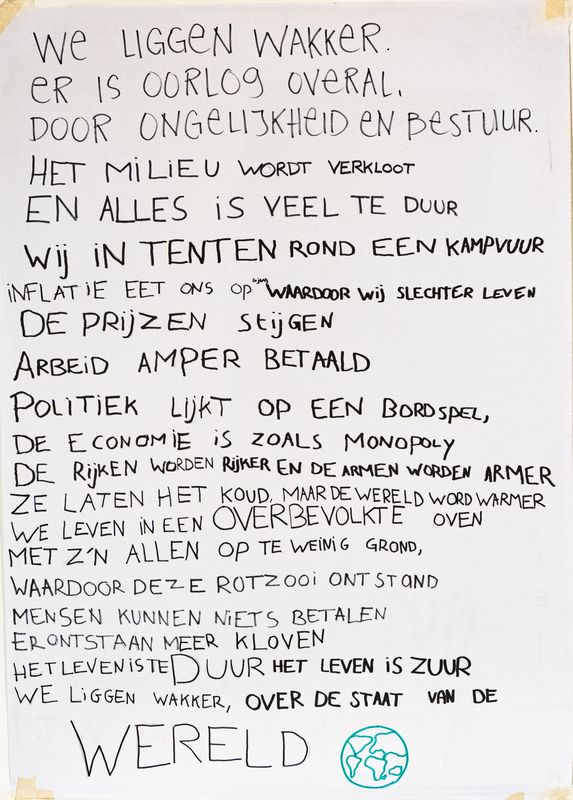 We LIGGEN WAKKER.
eR IS OORLOG OVERAL.
DOOR ONGELIJKHEID EN BESTUUR.
HET MILIEU WORDT VERKLOOT
EN ALLES iS VEEL TE DUUR
Wij iN TENTEN ROND EEN KAMPVUUR
iNFLATIE EET ONS OP WAARDOOR Wij SLECHTER LEVEN
DE PRijZEN StijGEN
ARBEiD AMPER BETAALD
POLiTiEK LijKT OP EEN BORDSPEL,
DE ECONOMIE iS ZOALS MONOPOLY
DE RijKEN WORDEN RijKER EN DE ARMEN WORDEN ARMER
ZE LATEN HET KOUD, MAAR DE WERELD WORD WARMER
WE LEVEN IN EEN OVERBEVOLKTE OVEN
MET Z'N ALLEN OP TE WEiNiG GROND,
WAARDOOR DEZE ROTZOOi ONTSTOND
MENSEN KUNNEN NiETS BETALEN
ER ONTSTAAN MEER KLOVEN
HET LEVEN IS TE DUUR HET LEVEN iS ZUUR
WE LiGGEN WAKKER, OVER DE STAAT VAN DE
WERELD